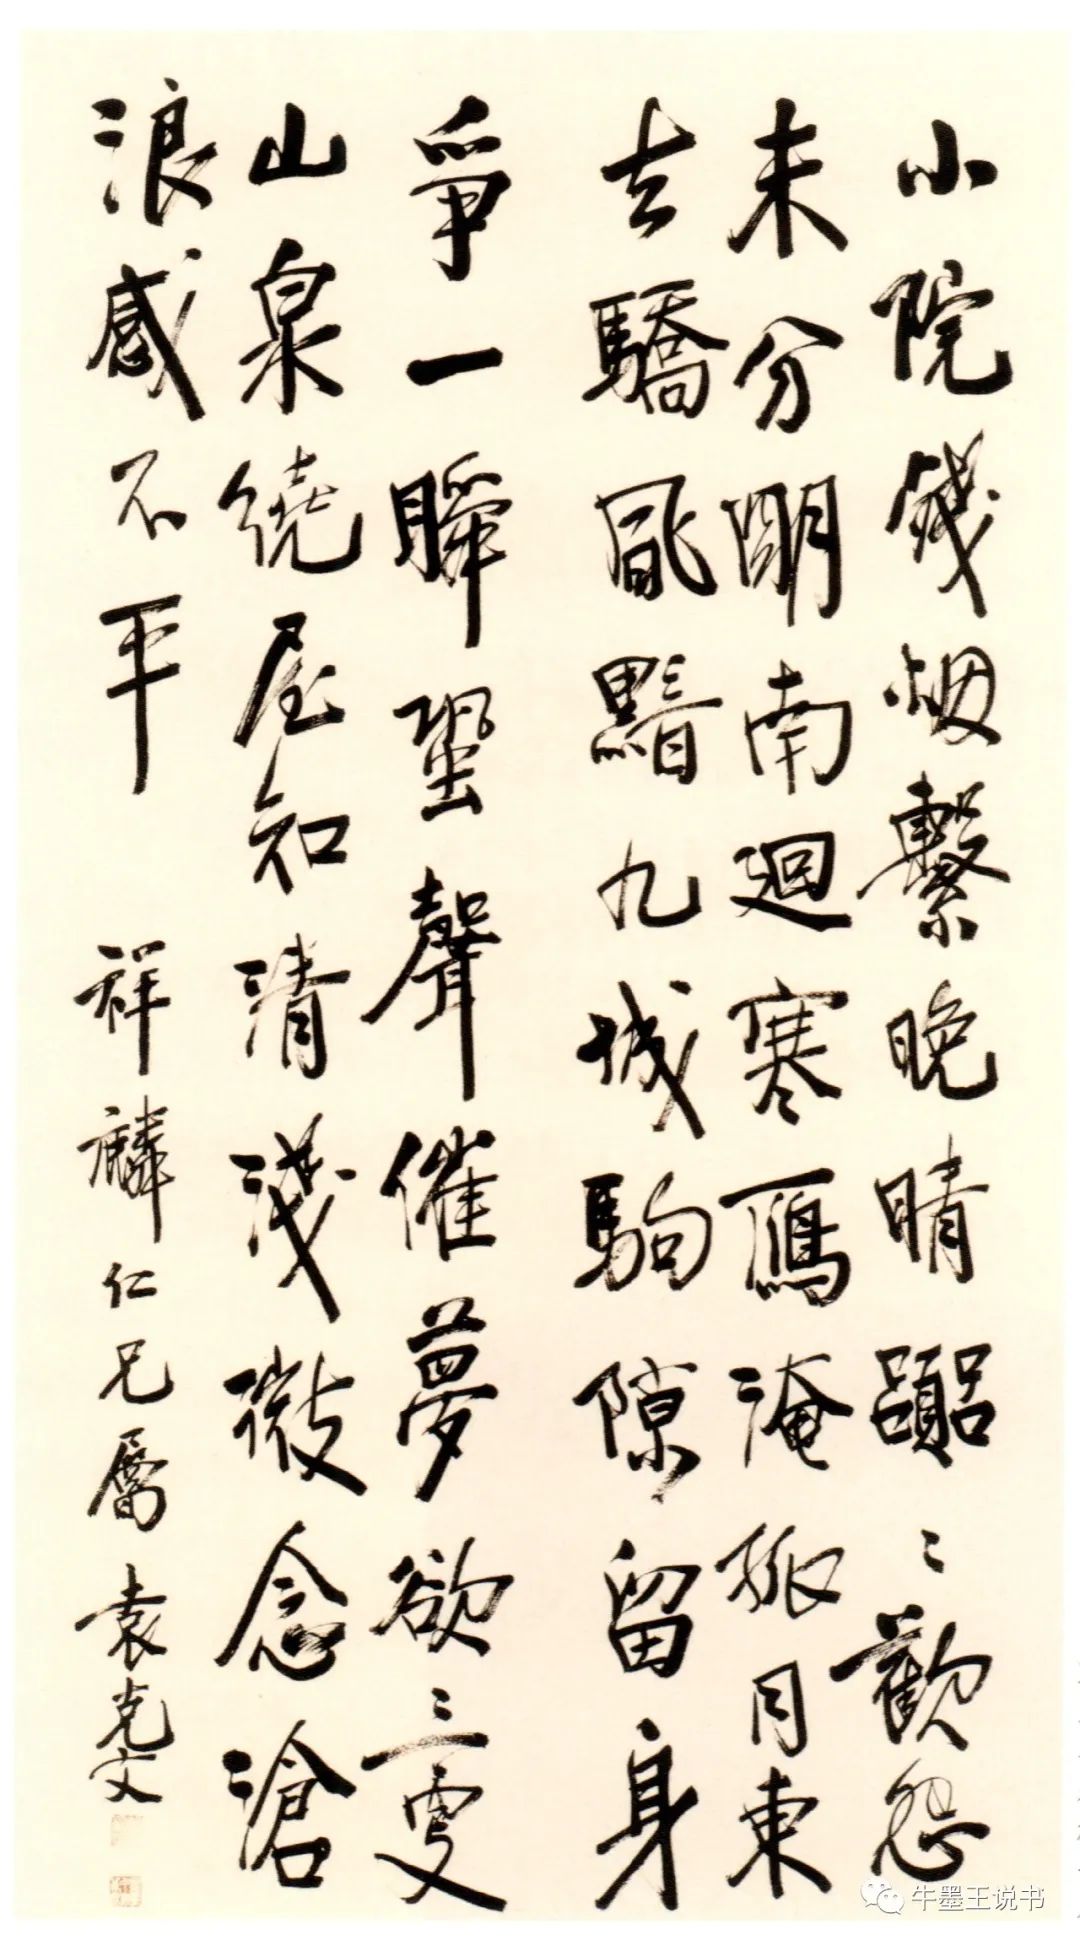 小院殘烟繫晚晴嚻〻歡怨
未分明南迴寒鴈淹孤月東
去驕風黯九城駒隙留身
爭一瞬蛩聲催夢欲三更
山泉繞屋知清淺微念滄
浪感不平 祥麟仁兄屬 袁克文
牛墨王说书